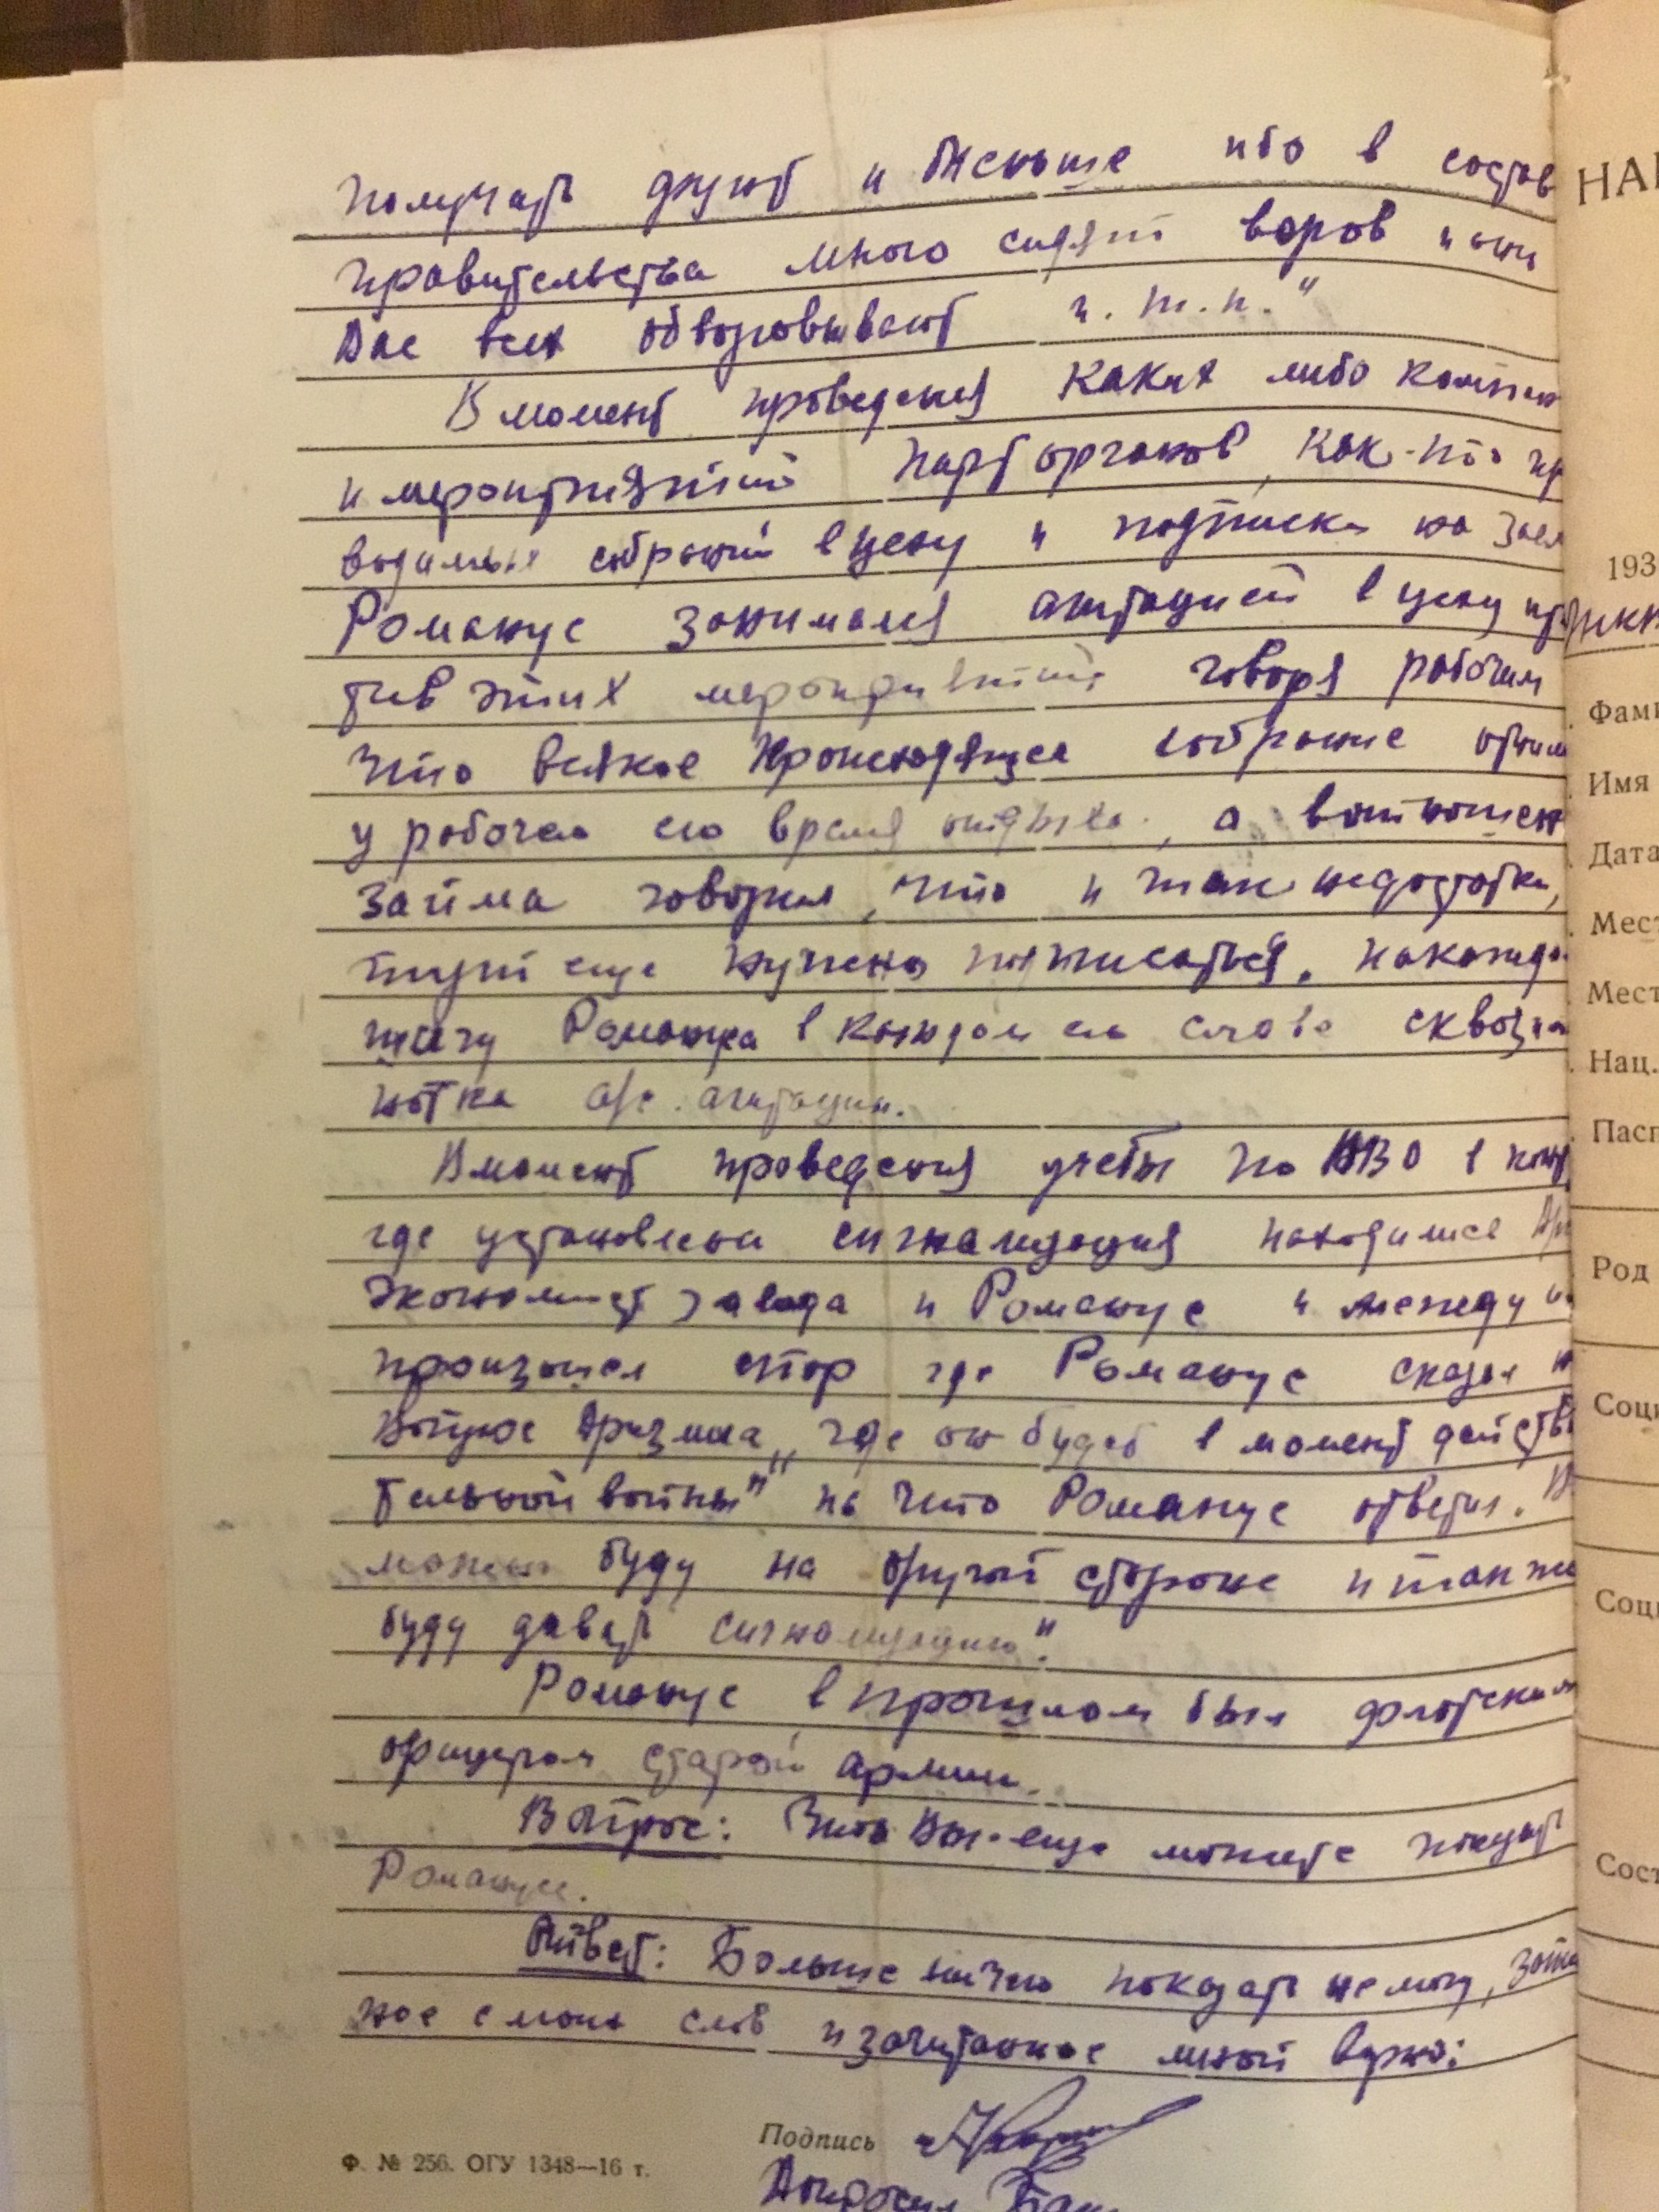 получать други и меньше ибо в состав
правительства много сидят воров и они
Вас всех обворовывают и. т. п."
В момент проведения каких либо компан
и мероприятий парторганов, как-то пр
водимых собраний в цеху и подписки на заем
Романус занимался агитацией в цеху про
тив этих мероприятий говоря рабочим
что всякое происходящее собрание отним
у рабочего его время отдыха, а в отношен
займа говорил, что и так недостатки,
тут еще нужно подписаться,
Романуса в каждом его слове сквозила
нотка а/с. агитации.
В момент проведения учебы по ПВО в
где установлена сигнализация находился
экономист завода и Романус и между
произошел спор где Романус сказал н
вопрос "где он будет в момент действи
тельной войны" на что Романус ответил.
может буду на другой стороне и также
буду давать сигнализацию".
Романус в прошлом был флотским
офицером старой армии.
Вопрос: Что Вы еще можете показать
Романусе.
Ответ: Больше ничего показать не могу, запи
ное с моих слов и зачитанное мной верно:
Подпись
Ф. № 256. ОГУ 1348—16 т.
Допросил
НА
193
Фами
Имя
Дата
Мест
Мест
Нац.
Пасп
Род
Соци
Соци
Сост